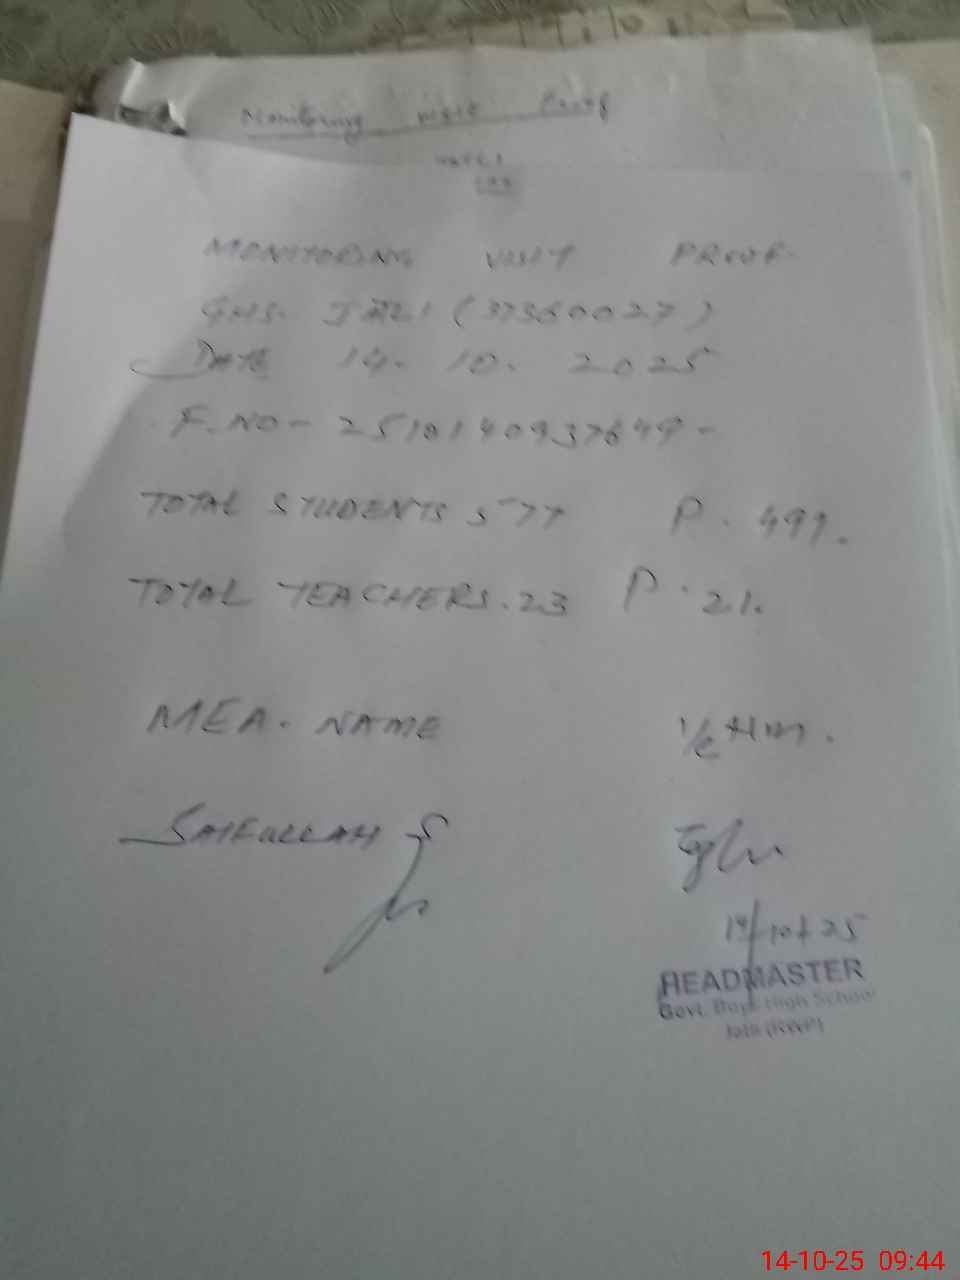 Monitoring visit Proof
MONITORING VISIT PROOF.
GHS. JALI (37360027)
DATE 14. 10. 2025
F.NO- 2510140937649-
TOTAL STUDENTS 577 P. 499.
TOTAL TEACHERS. 23 P. 21.
MEA. NAME I/C HM.
SAIFULLAH
14/10/25
HEADMASTER
Govt. Boys High School
Jatli (RWP)
14-10-25 09:44